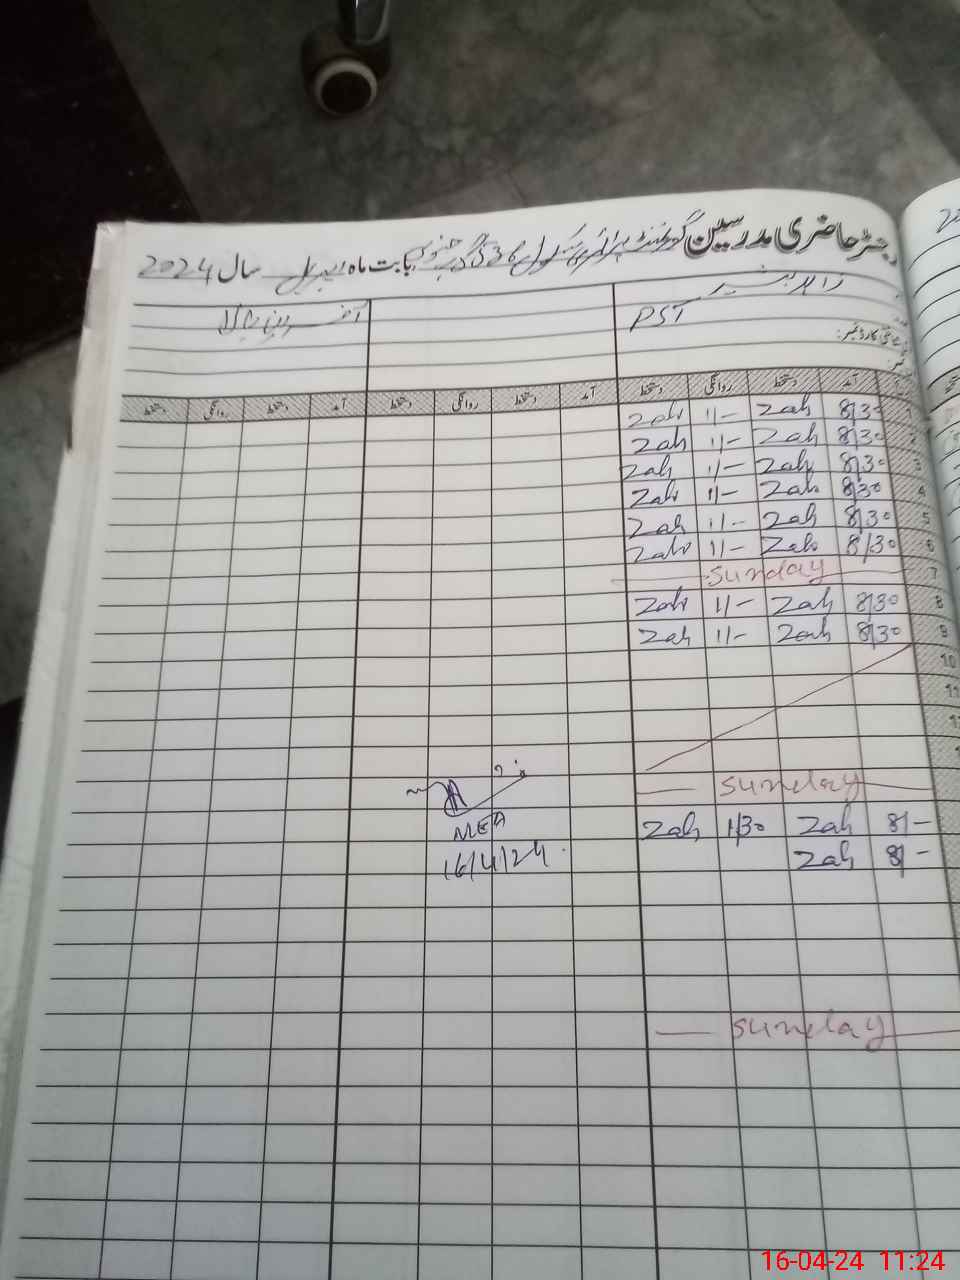 رجسٹر حاضری مدرسین گورنمنٹ پرائمری سکول 36 بابت ماہ اپریل سال 2024
PST
آمد دستخط روانگی دستخط آمد دستخط روانگی دستخط آمد دستخط روانگی دستخط
8/30 Zah 11/- Zah
2 8/30 Zah 11/- Zah
3 8/30 Zah 11/- Zah
4 8/30 Zah 11/- Zah
5 8/30 Zah 11/- Zah
6 8/30 Zah 11/- Zah
7 Sunday
8 8/30 Zah 11/- Zah
9 8/30 Zah 11/- Zah
10
11
Sunday
8/- Zah 1/30 Zah
8/- Zah
MEA
16/4/24
Sunday
16-04-24 11:24